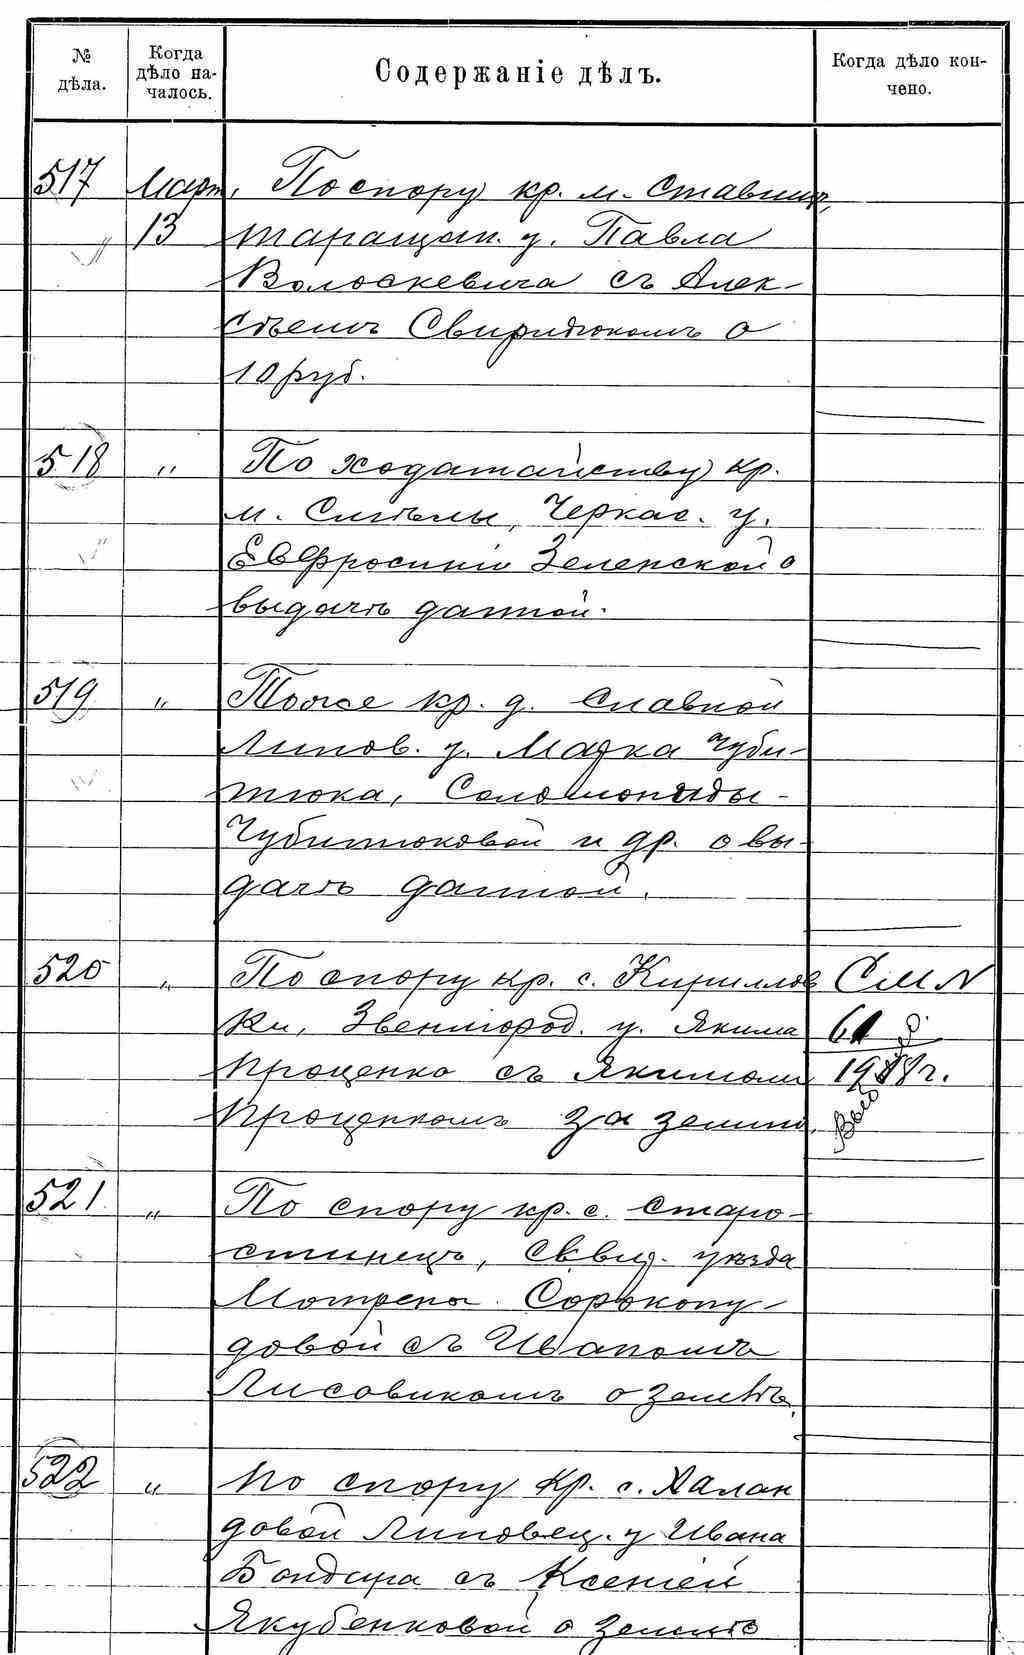 № дѣла.
Когда дѣло началось.
Содержаніе дѣлъ.
Когда дѣло кончено.
517 Март. По спору кр. м. Ставищъ,
13 таращан. у. Павла
Волоскевича съ Алек-
сѣемъ Свиридюкомъ о
10 руб.
518 " По ходатайству кр.
м. Смѣлы, Черкас. у.
Евфросиніи Зеленской о
выдачѣ данной.
519 " Тоже кр. д. Славной
Липов. у. Марка Чуби-
тюка, Соломониды
Чубитюковой и др. о вы-
дачѣ данной.
520 " По спору кр. с. Кириллов
ки, Звенигород. у. Якима
Проценко съ Якимом
Проценкомъ за землю.
См №
61
1918 г.
521 " По спору кр. с. Старо-
стинецъ, Сквир. уѣзда
Мотрены Сорокопу-
довой съ Иваномъ
Лисовикомъ о землѣ.
522 " По спору кр. с. Халаи
довой Липовец. у Ивана
Бондара съ Ксеніей
Якубенковой о землѣ